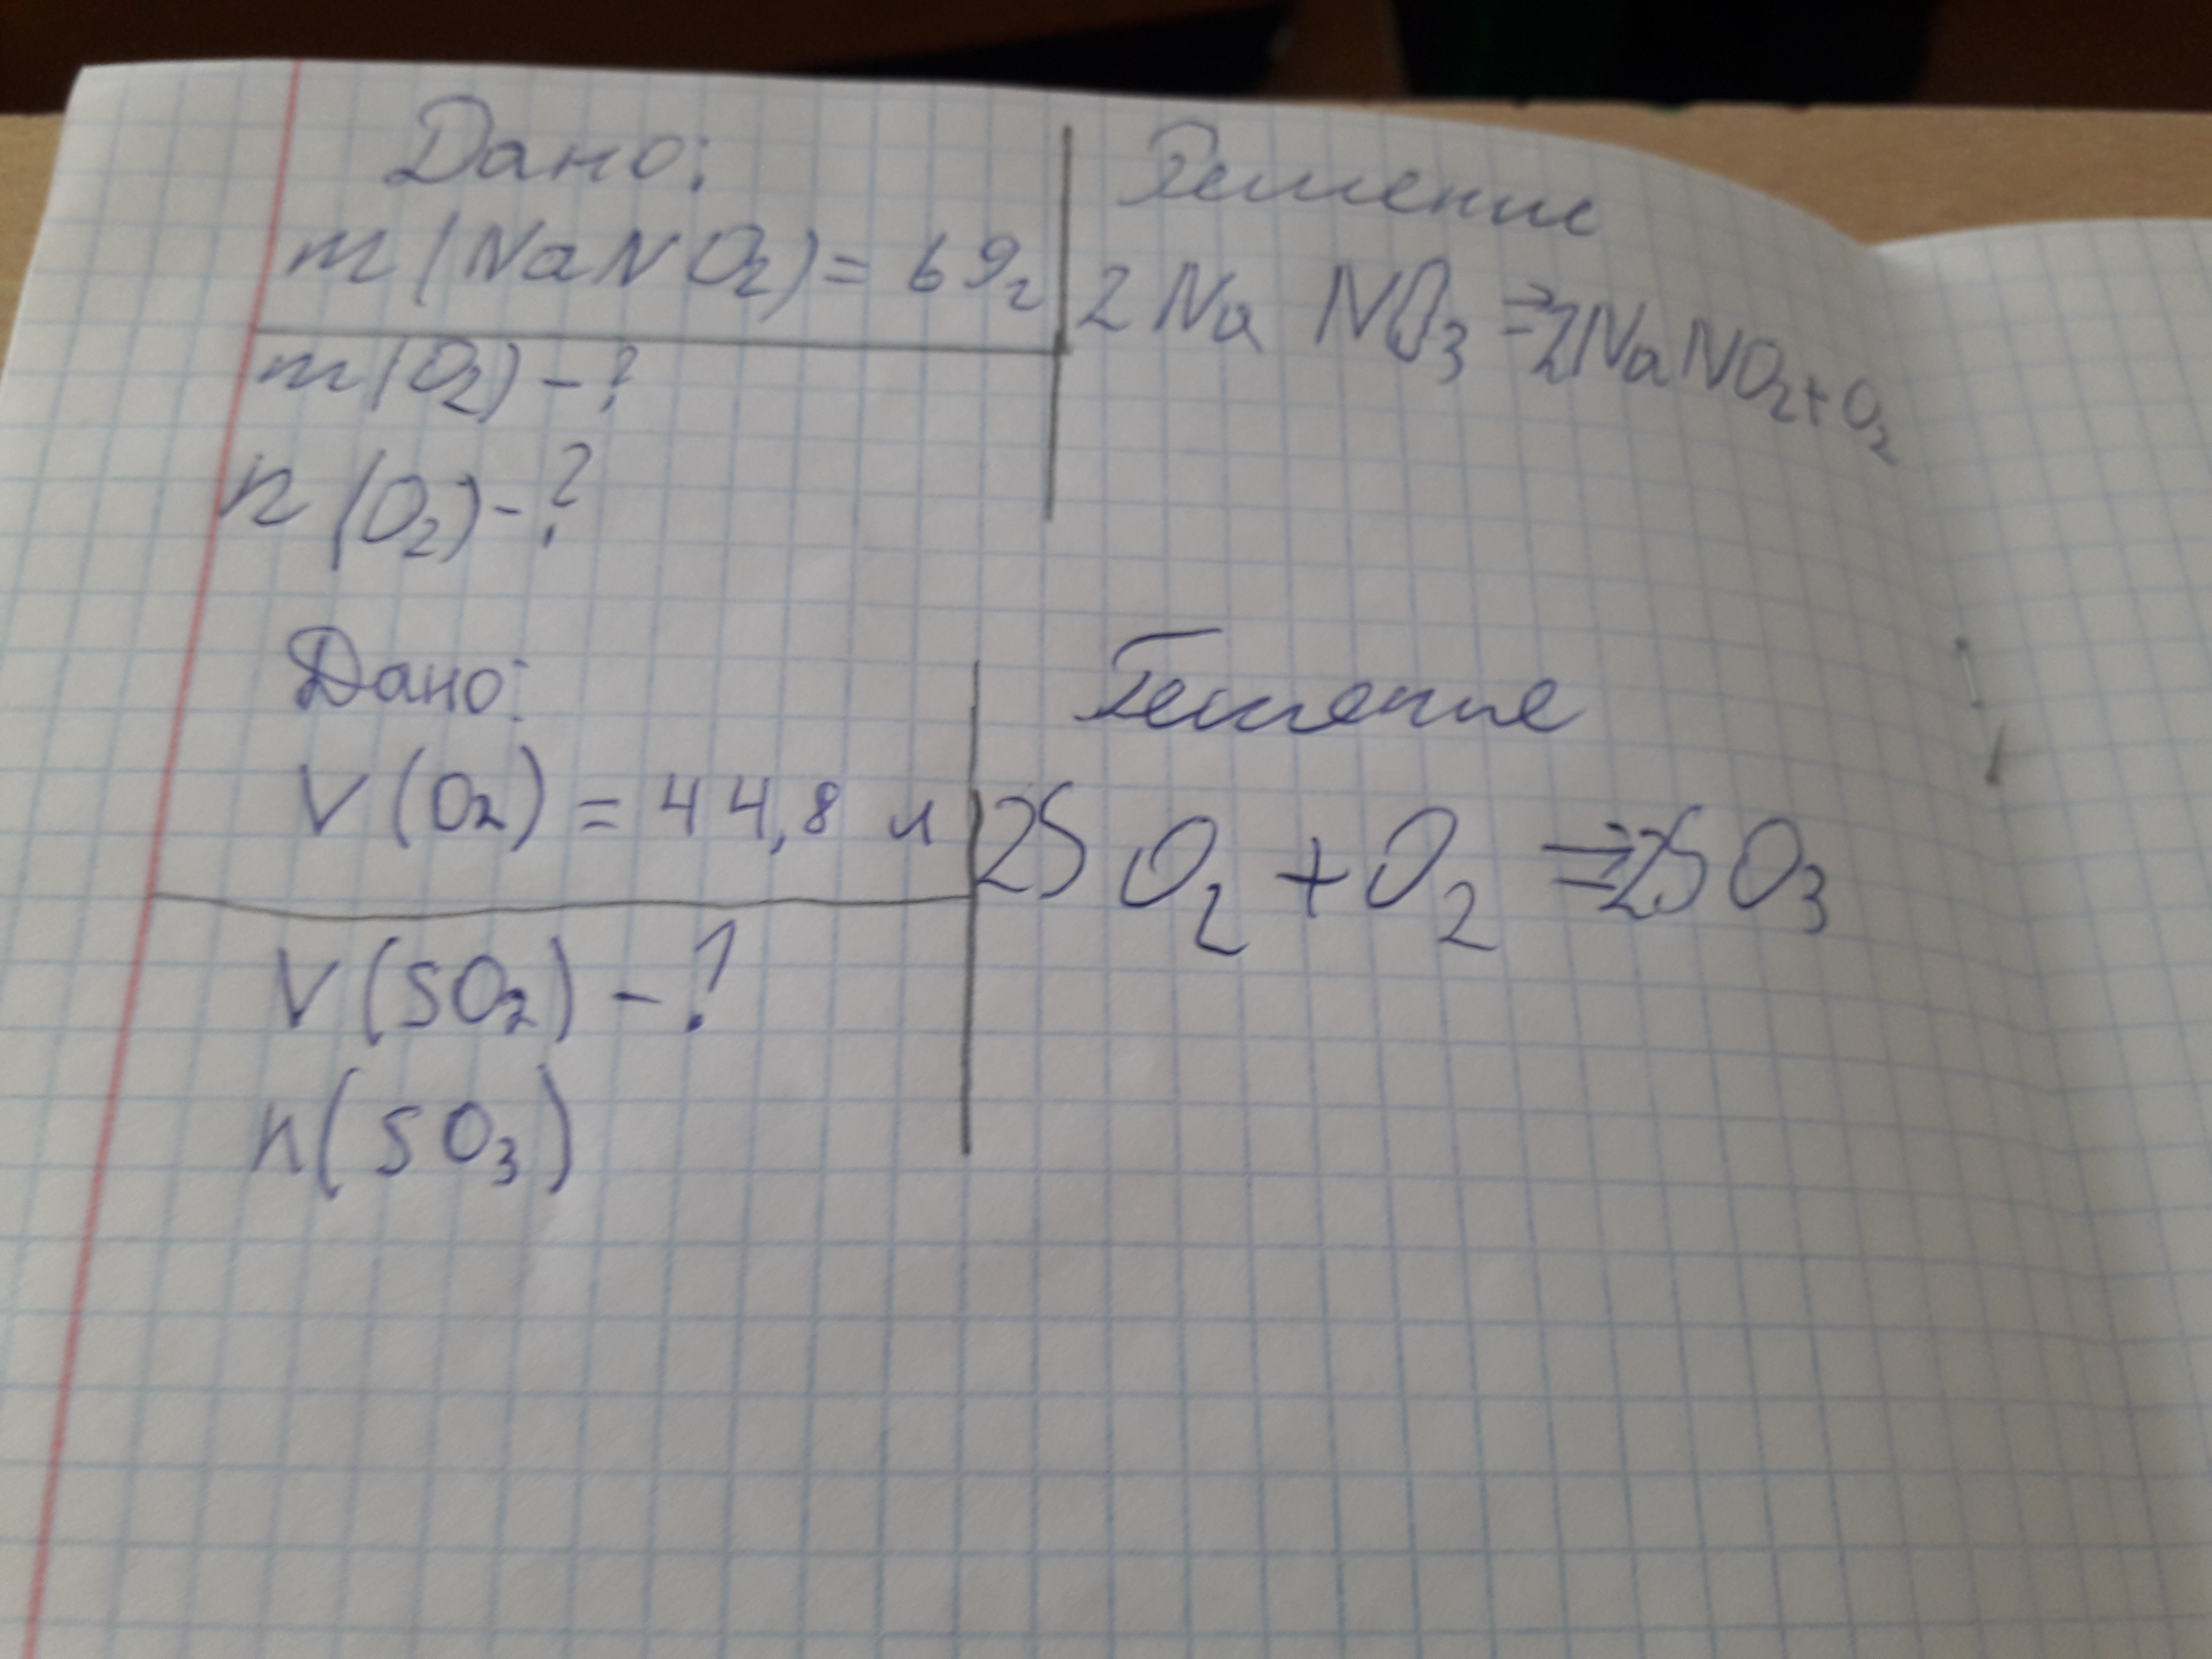 Дано:
m(NaNO₂) = 69г
m(O₂) - ?
n(O₂) - ?
Решение
2NaNO₃ ⇒ 2NaNO₂ + O₂
Дано:
V(O₂) = 44,8 л
V(SO₂) - ?
n(SO₃)
Решение
2SO₂ + O₂ ⇒ 2SO₃